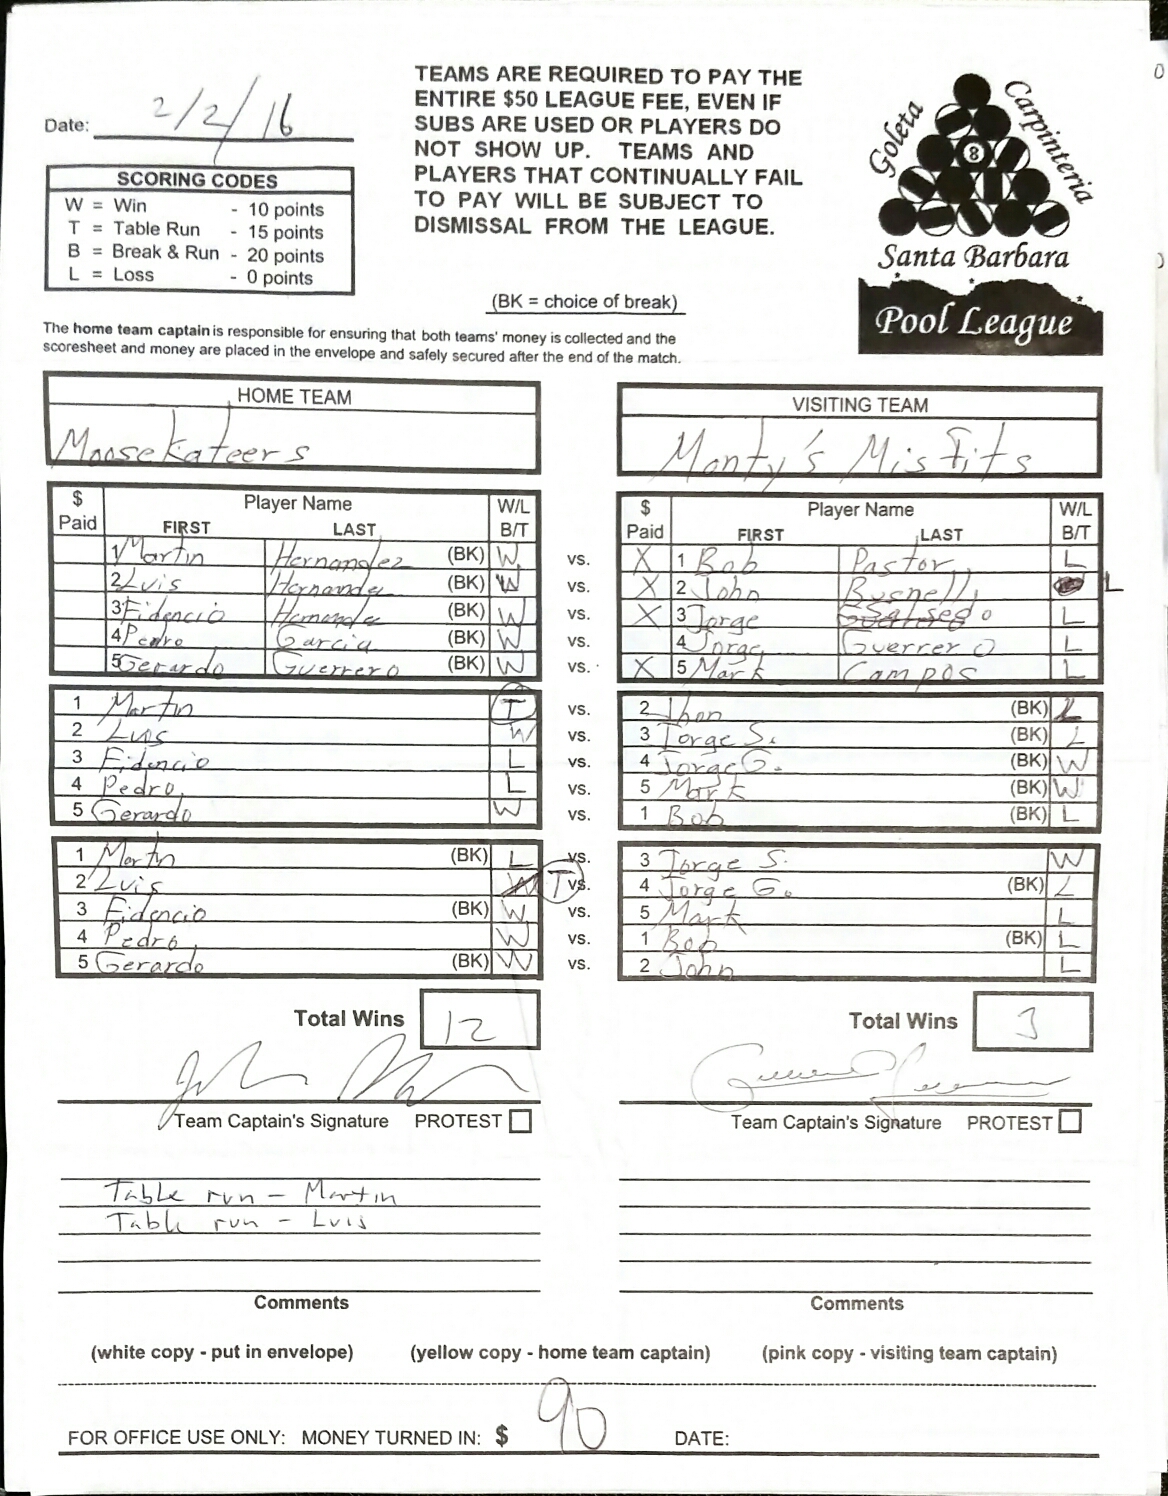 TEAMS ARE REQUIRED TO PAY THE
ENTIRE $50 LEAGUE FEE, EVEN IF
SUBS ARE USED OR PLAYERS DO
NOT SHOW UP. TEAMS AND
PLAYERS THAT CONTINUALLY FAIL
TO PAY WILL BE SUBJECT TO
DISMISSAL FROM THE LEAGUE.
Date: 2/2/16
SCORING CODES
W = Win - 10 points
T = Table Run - 15 points
B = Break & Run - 20 points
L = Loss - 0 points
Goleta
Carpinteria
8
Santa Barbara
Pool League
(BK = choice of break)
The home team captain is responsible for ensuring that both teams' money is collected and the
scoresheet and money are placed in the envelope and safely secured after the end of the match.
HOME TEAM VISITING TEAM
Moosekateers Monty's Misfits
$ Paid Player Name FIRST LAST W/L B/T $ Paid Player Name FIRST LAST W/L B/T
1 Martin Hernandez (BK) W vs. X 1 Bob Pastor L
2 Luis Hernande (BK) W vs. X 2 John Bushell L
3 Fidencio Hernande (BK) W vs. X 3 Jorge Salsedo L
4 Pedro Garcia (BK) W vs. 4 Jorge Guerrero L
5 Gerardo Guerrero (BK) W vs. X 5 Mark Campos L
1 Martin T vs. 2 Jhon (BK) L
2 Luis W vs. 3 Jorge S. (BK) L
3 Fidencio L vs. 4 Jorge G. (BK) W
4 Pedro L vs. 5 Mark (BK) W
5 Gerardo W vs. 1 Bob (BK) L
1 Martin (BK) L vs. 3 Jorge S. W
2 Luis W T vs. 4 Jorge G. (BK) L
3 Fidencio (BK) W vs. 5 Mark L
4 Pedro W vs. 1 Bob (BK) L
5 Gerardo (BK) W vs. 2 John L
Total Wins 12 Total Wins 3
Team Captain's Signature PROTEST Team Captain's Signature PROTEST
Table run - Martin
Table run - Luis
Comments Comments
(white copy - put in envelope) (yellow copy - home team captain) (pink copy - visiting team captain)
FOR OFFICE USE ONLY: MONEY TURNED IN: $ 90 DATE: